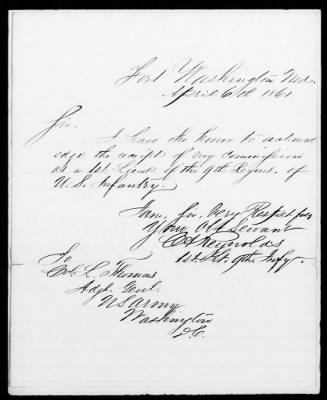 Fort Washington Md.
April 6th 1861
Sir.
I have the honor to acknowl
edge the receipt of my Commission
as a 1st Lieut of the 9th Regmt. of
U.S. Infantry.
I am, Sir, Very Respectfully
Your Obt Servant
Reynolds
1st Lt. 9th Infy.
To
Col. L. Thomas
Adjt. Genl.
U S Army
Washington
D.C.